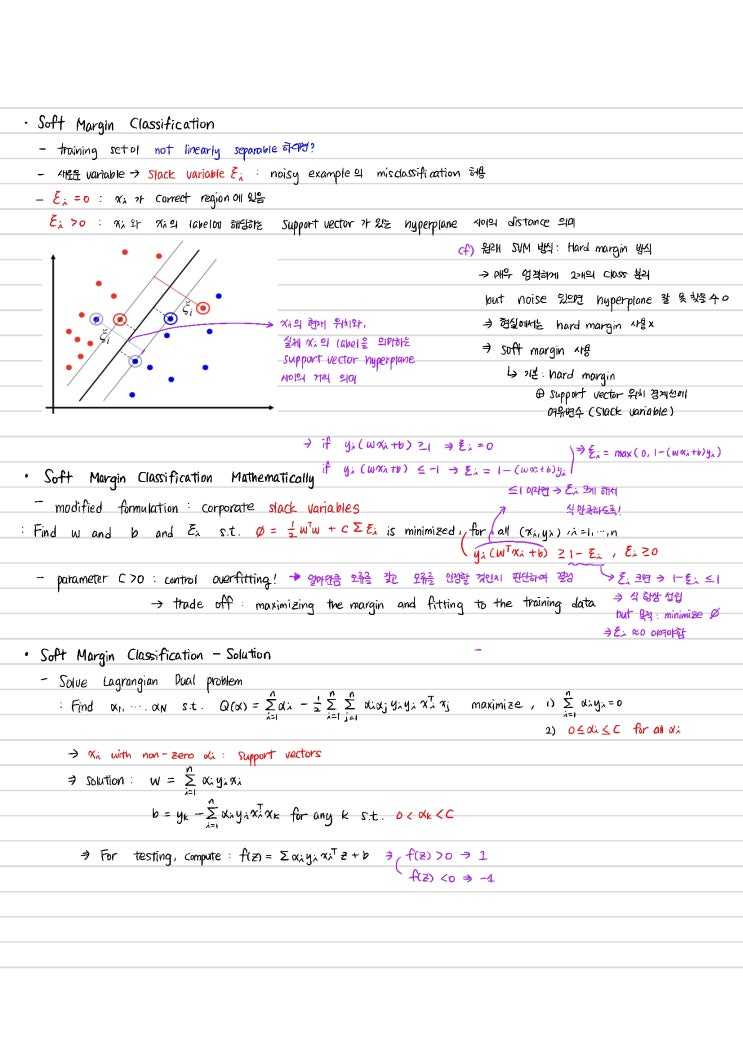 · Soft Margin Classification
- training set이 not linearly separable 하다면?
- 새로운 variable → slack variable ξi : noisy example의 misclassification 허용
- ξi = 0 : xi가 correct region에 있음
ξi > 0 : xi와 xi의 label에 해당하는 support vector가 있는 hyperplane 사이의 distance 의미
cf) 원래 SVM 방식: Hard margin 방식
→ 매우 엄격하게 2개의 class 분리
but noise 있으면 hyperplane 잘 못 찾을 수 o
⇒ 현실에서는 hard margin 사용 x
⇒ soft margin 사용
↳ 기본 : hard margin
⊕ support vector 위치 경계선에
여유변수 (slack variable)
ξi
ξi
xi의 현재 위치와,
실제 xi의 label을 의미하는
support vector hyperplane
사이의 거리 의미
→ if yi(wxi+b) ≥ 1 → ξi = 0
if yi(wxi+b) ≤ -1 → ξi = 1-(wxi+b)yi
⇒ ξi = max(0, 1-(wxi+b)yi)
· Soft Margin Classification Mathematically
- modified formulation : corporate slack variables
≤1 이라면 → ξi 크게 해서
식 만족하도록!
: Find w and b and ξi s.t. Φ = ½wᵀw + C Σξi is minimized, for all (xi,yi), i=1,…,n
yi(wᵀxi+b) ≥ 1-ξi , ξi ≥ 0
- parameter C>0 : control overfitting! → 얼마만큼 오류를 갖고 오류를 인정할 것인지 판단하여 결정
→ trade off : maximizing the margin and fitting to the training data
→ ξi 크면 → 1-ξi ≤ 1
→ 식 항상 성립
but 목적 : minimize Φ
⇒ ξi ≈ 0 이여야함
· Soft Margin Classification - Solution
- Solve Lagrangian Dual problem
: Find α1, …, αN s.t. Q(α) = Σ(i=1..n) αi - ½ Σ(i=1..n) Σ(j=1..n) αiαj yiyi xiᵀxj maximize, 1) Σ(i=1..n) αiyi = 0
2) 0 ≤ αi ≤ C for all αi
→ xi with non-zero αi : support vectors
⇒ solution : w = Σ(i=1..n) αiyixi
b = yk - Σ(i=1..n) αiyixiᵀxk for any k s.t. 0 < αk < C
⇒ For testing, compute : f(z) = Σαiyixiᵀz + b ⇒ f(z) > 0 → 1
f(z) < 0 ⇒ -1